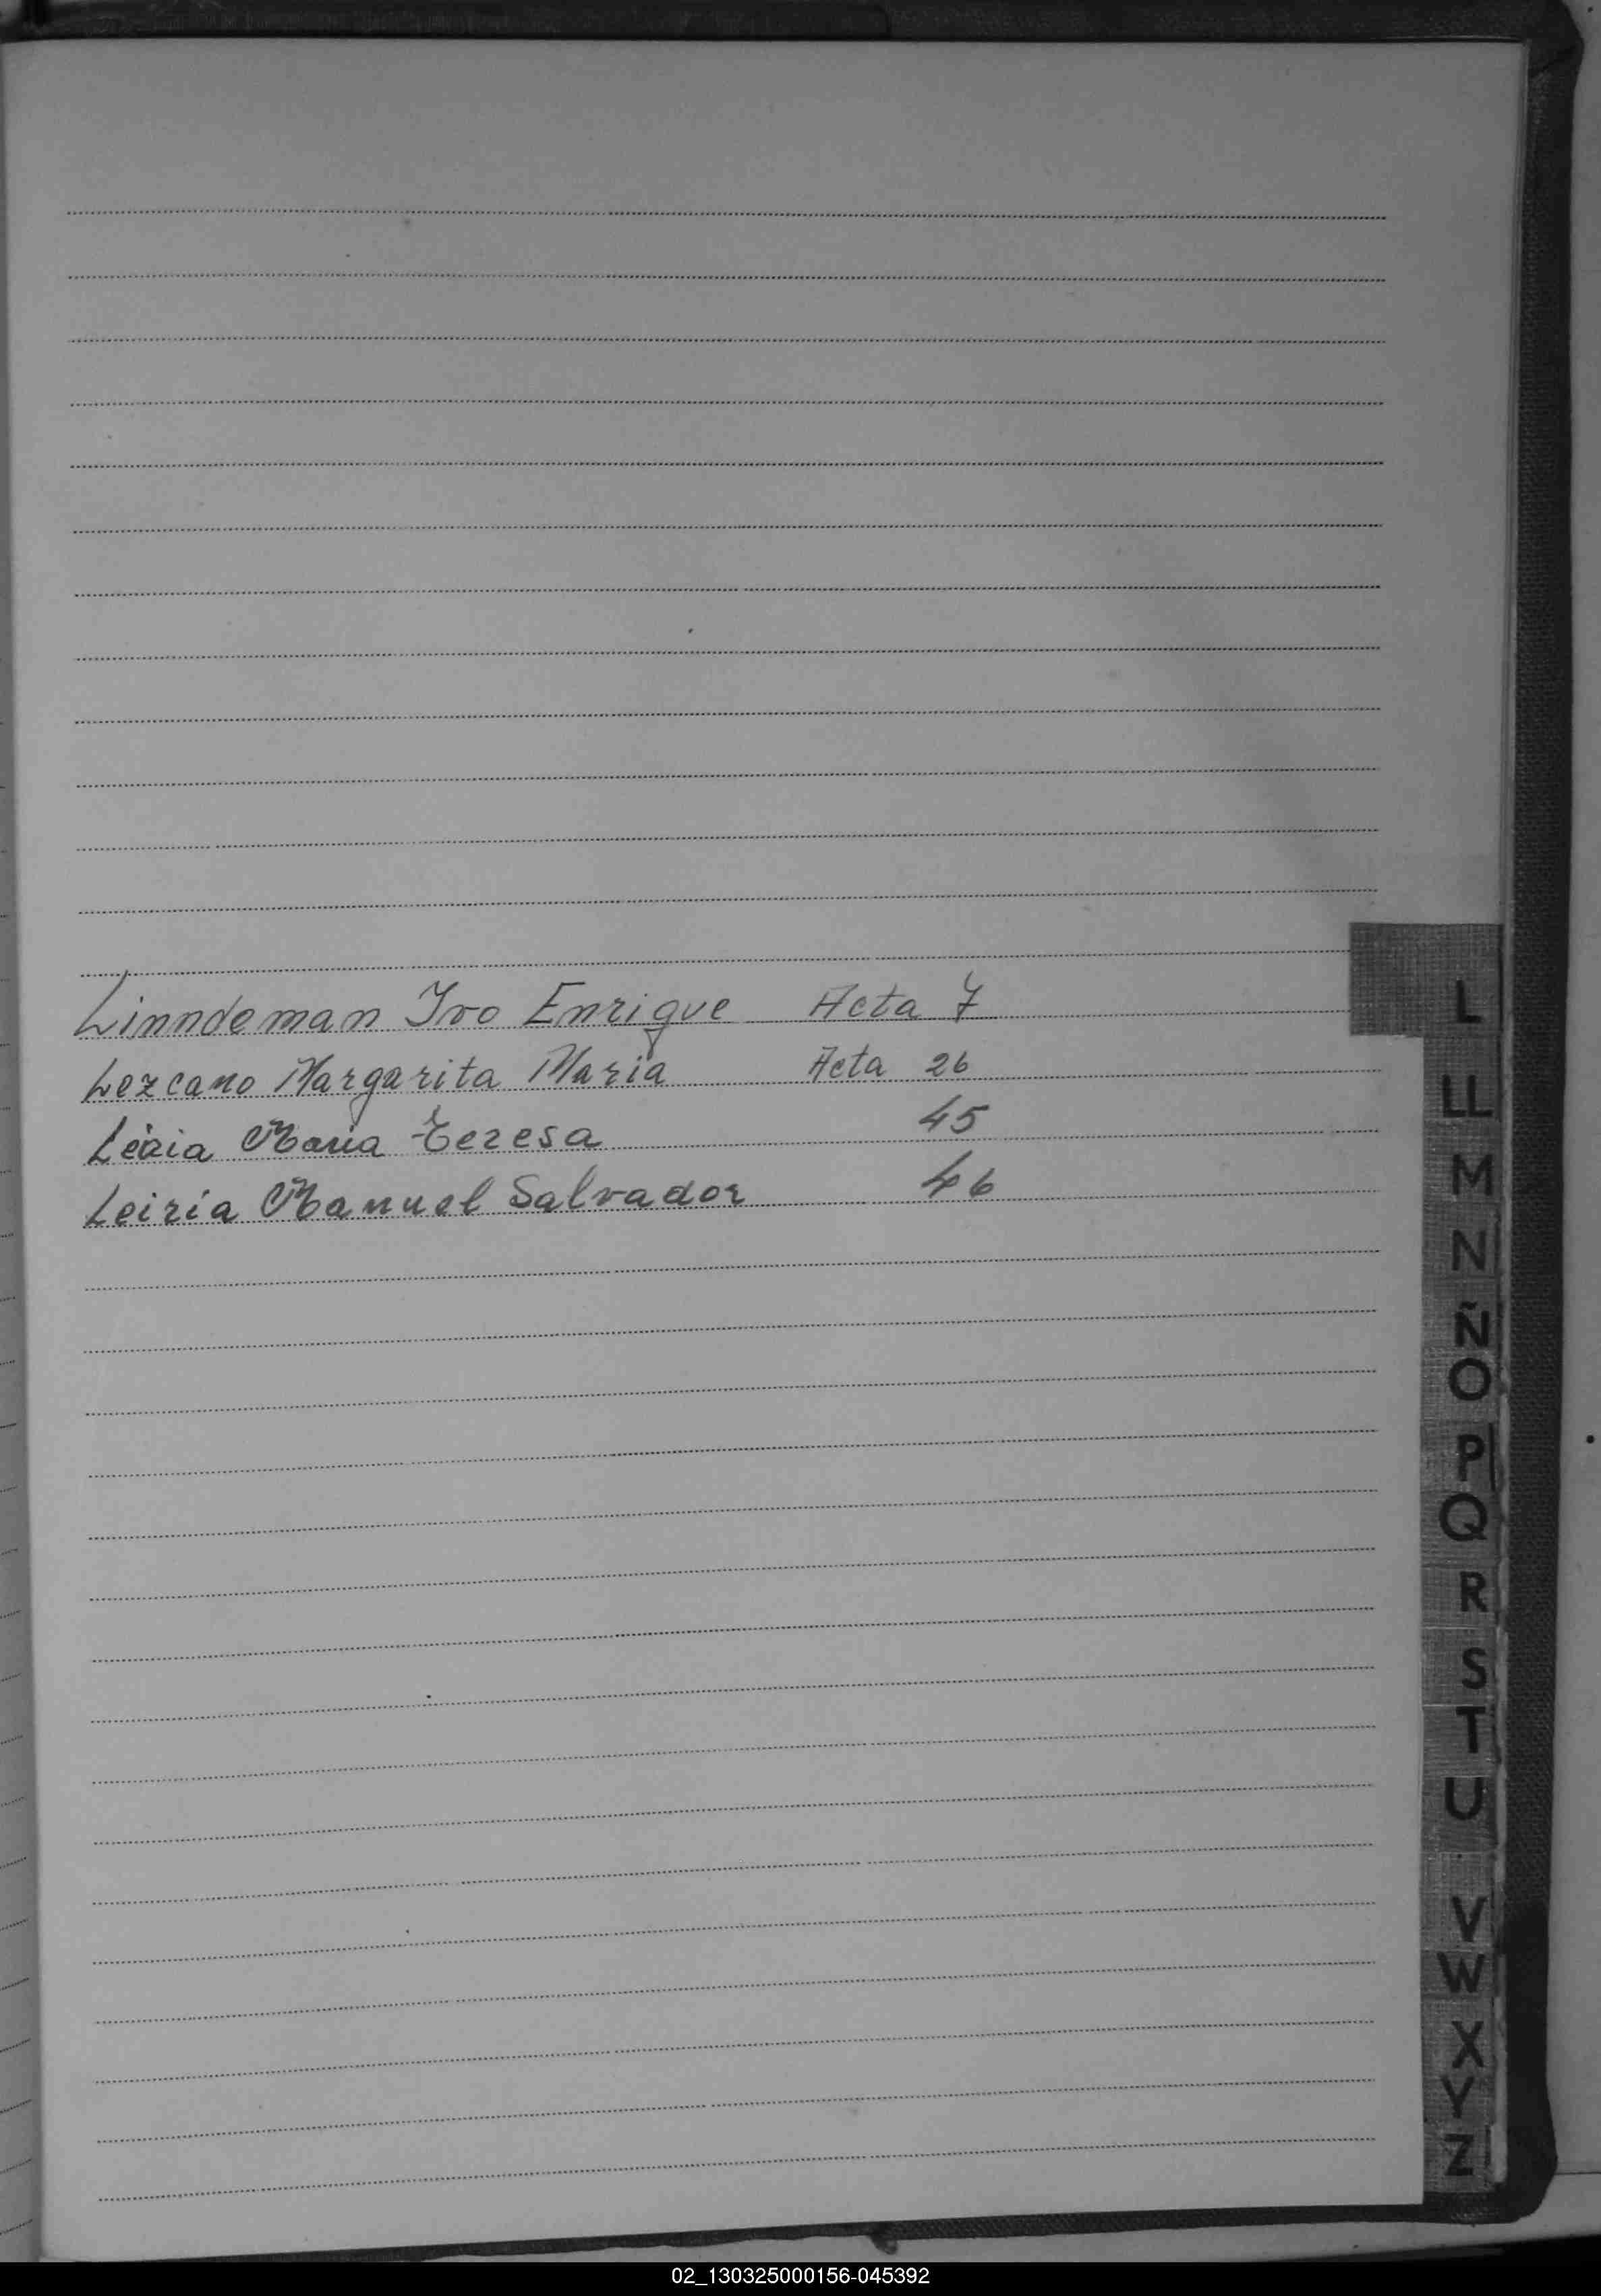 Linndeman Ivo Enrique Acta 7
Lezcano Margarita Maria Acta 26
Leiria Maria Teresa 45
Leiria Manuel Salvador 46
L
LL
M
N
Ñ
O
P
Q
R
S
T
U
V
W
X
Y
Z
02_130325000156-045392